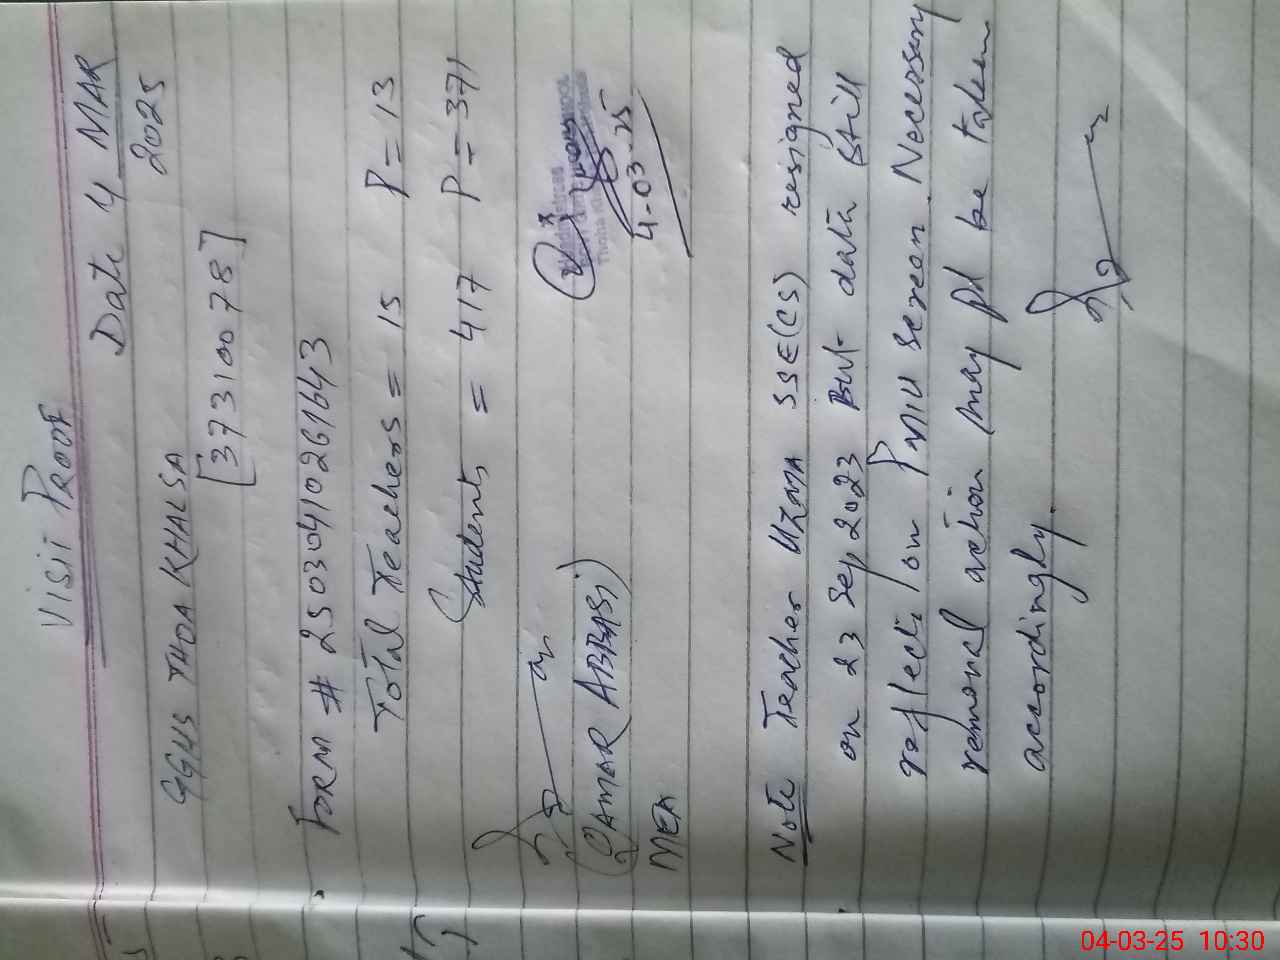 VISIT PROOF
Date 4 MAR
2025
GGHS THOA KHALSA
[37310078]
FORM # 25030410261643
Total Teachers = 15 P = 13
Students = 417 P = 371
4-03-25
(QAMAR ABBASI)
MEA
Note Teacher UZMA SSE(CS) resigned
on 23 Sep 2023 But data still
reflect on PMIU screen. Necessary
removal action may pl be taken
accordingly.
04-03-25 10:30